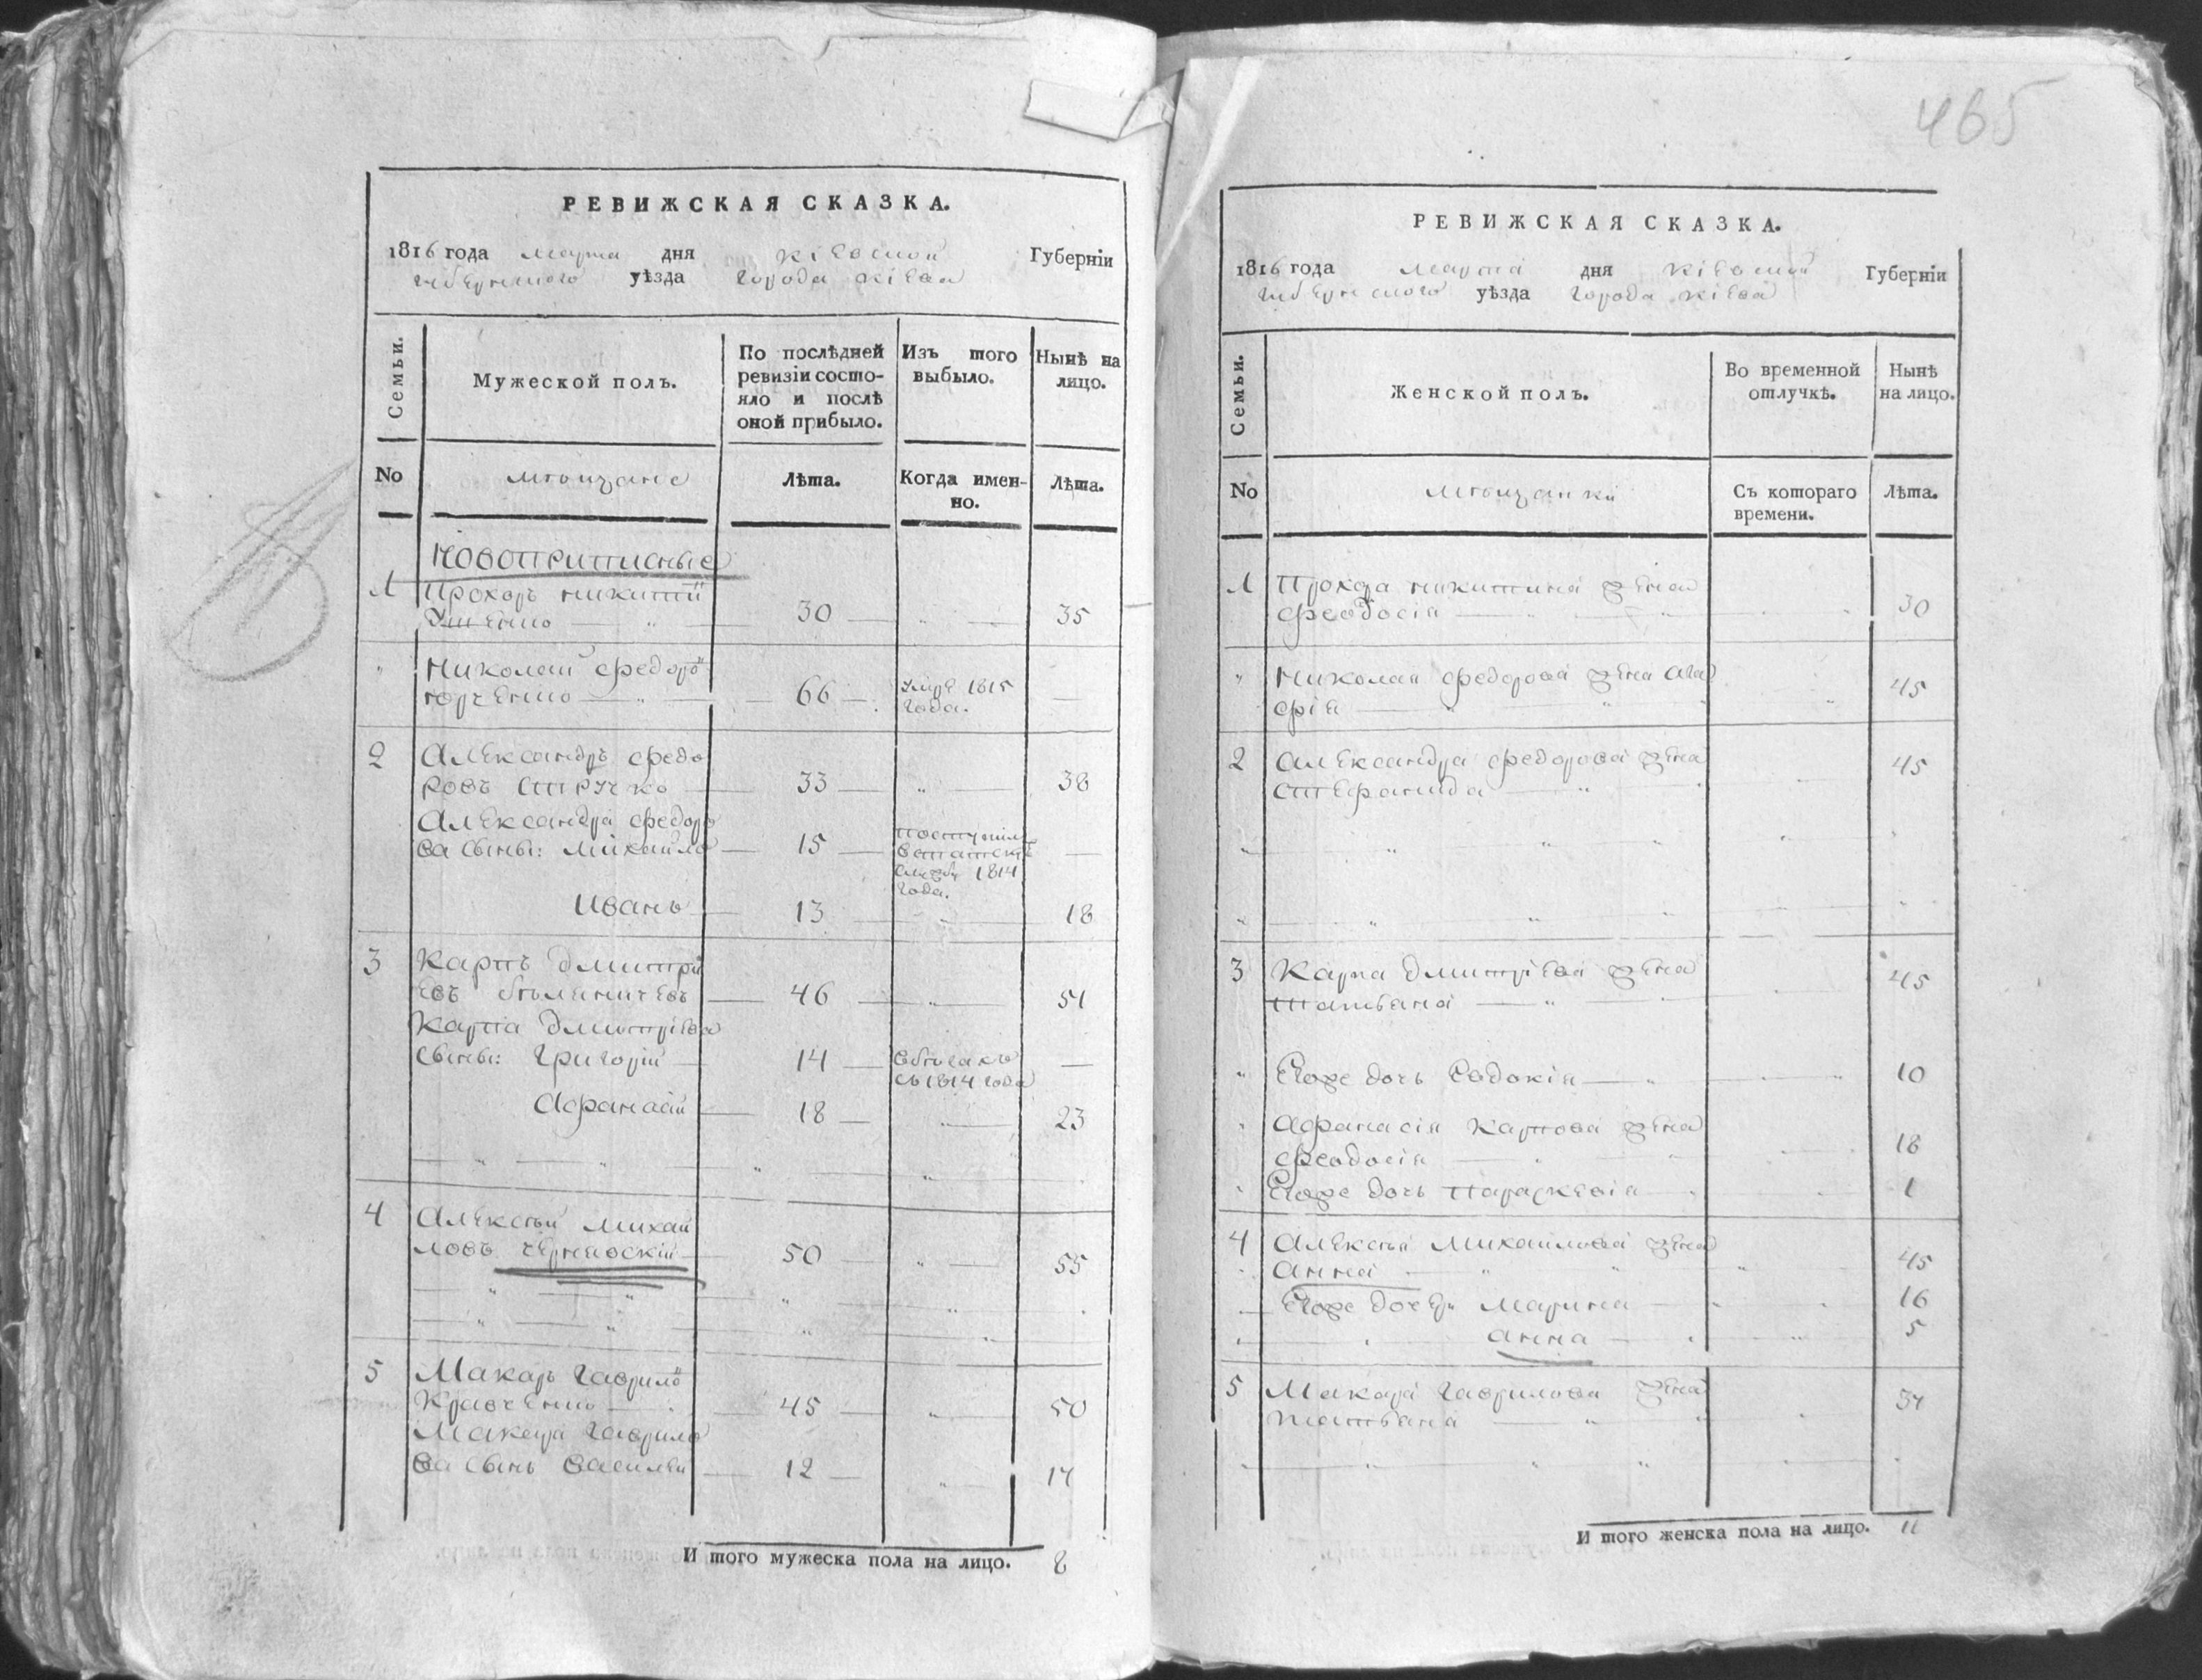 465
РЕВИЖСКАЯ СКАЗКА.
1816 года марта дня Кіевской Губерніи
губернского уѣзда города Кіева
Семьи.
Мужеской полъ.
По послѣдней ревизіи состояло и послѣ оной прибыло.
Изъ того выбыло.
Нынѣ на лицо.
No мѣщане Лѣта. Когда именно. Лѣта.
Новоприписные
1 Прохоръ Никитинъ
30 35
" Николай Федоровъ
Юрченко 66 умре 1815 года. —
2 Александръ Федо
ровъ Стручко 33 " 38
Александра Федоро
ва сыны: Михайло 15 1814 года. —
Иванъ 13 " 18
3 Карпъ Дмитрі
евъ 46 " 51
Карпа Дмитріева
сыны: Григорій 14 в бѣгахъ съ 1814 года —
Афанасій 18 " 23
4 Алексѣй Михай
ловъ Чернявскій 50 " 55
5 Макаръ Гаврило
Кравченко 45 " 50
Макара Гаврило
ва сынъ Василей 12 " 17
И того мужеска пола на лицо. 8
РЕВИЖСКАЯ СКАЗКА.
1816 года марта дня Кіевской Губерніи
губернского уѣзда города Кіева
Семьи.
Женской полъ.
Во временной отлучкѣ.
Нынѣ на лицо.
No мѣщанки Съ котораго времени. Лѣта.
1 Прохора Никитина жена
Феодосія " 30
" Николая Федорова жена Ага
фія " 45
2 Александра Федорова жена 45
Стефанида "
3 Карпа Дмитріева жена 45
Татьяна "
" Егоже дочь Евдокія " 10
" Афанасія Карпова жена
Феодосія " 18
" Егоже дочь Параскевія " 1
4 Алексѣя Михайлова жена
Анна " 45
Егоже дочери Марина 16
Анна 5
5 Макара Гаврилова жена
Татьяна " 34
И того женска пола на лицо. 11